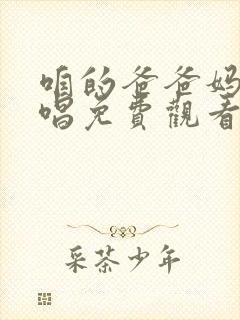 咱的爸爸妈
唱免費觀看
采茶少年